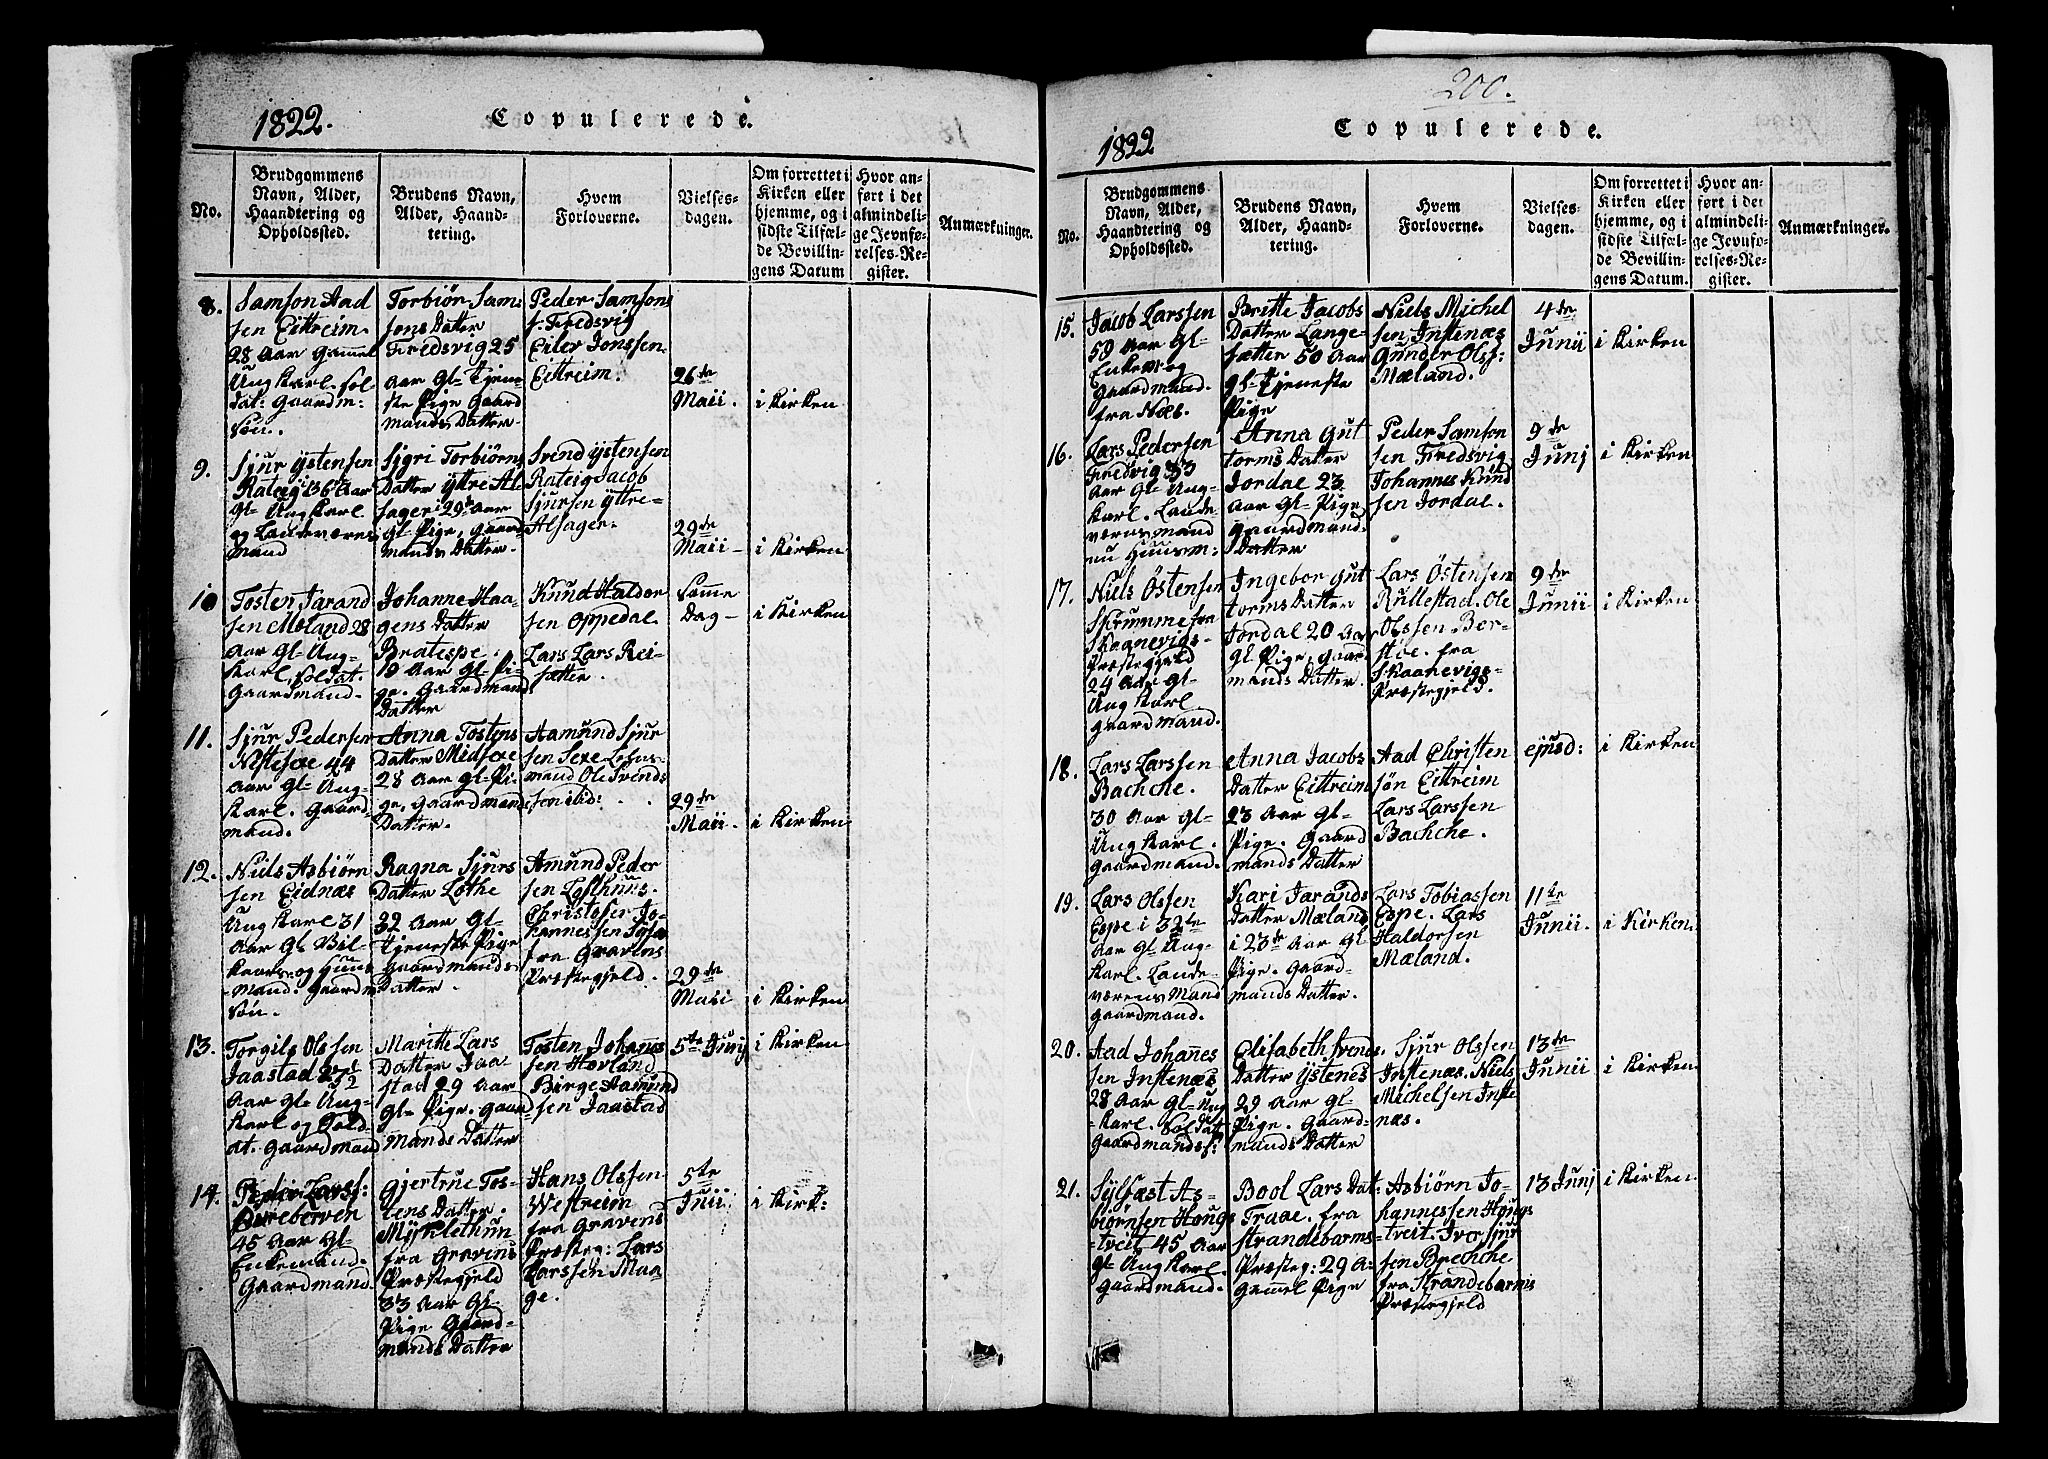 1822.
Copulerede.
No.
Brudgommens
Navn, Alder,
Haandtering og
Opholdssted.
Brudens Navn,
Alder, Haand-
tering.
Hvem
Forloverne.
Vielses-
dagen.
Om forrettet i
Kirken eller
hjemme, og i
sidste Tilfæl-
de Bevillin-
gens Datum
Hvor an-
ført i det
almindeli-
ge Jevnfø-
relses-Re-
gister.
Anmærkninger.
8.
Samson Aad
sen Eittreim
28 Aar gammel
Ung Karl. sol
dat: Gaardm:
Søn.
Torbiør Sam-
sons Datter
Fredsvig 25
Aar gl- tjene-
ste Pige Gaard
mands Datter-
Peder Samson
s: Fredsvig
Eiler Jonssen
Eittreim.
26de
Maii.
i Kirken
9.
Sjur ystensen
Rateig i 36te Aar
gl- Ung Karl
og Landeværns
mand
Sjgri Torbiørns
Datter yttre Al
sager i 29de Aar
gl- Pige, gaard
mands Datter.
Svend ystensen
Rateig Jacob
Sjursen yttre-
Alsager.
29de
Maii-
i Kirken
10
Tosten Jarand
sen Mæland 28
Aar gl- Ung-
Karl, soldat.
gaardmand.
Johanne Haa-
gens Datter
Bratespe.
19 Aar gl- Pi-
ge. Gaardmands
Datter
Knud Haldor
sen Oppedal.
Lars Lars Rei-
sætter.
Samme
Dag-
i Kirken
11.
Sjur Pedersen
Nestesexe 44
Aar gl- Ung-
Karl. Gaard-
mand.
Anna Tostens
Datter Midsexe
28 Aar gl- Pi-
ge, gaardmands
Datter.
Aamund Sjur
sen Sexe Lehns-
mand Ole Svends
sen ibid:
29de
Maii.
i Kirken
12.
Niels Asbiørn
sen Eidnæs
Ung Karl 31
Aar gl-
og Huus
Mand. gaardm
Søn.
Ragna Sjurs
Datter Lothe
32 Aar gl-
tjeneste Pige
Gaardmands
Datter.
Amund Peder
sen Lofthuus.
Christofer Jo-
hannessen
fra Gravens
Præstegjeld.
29de
Maii
i Kirken
13.
Torgils Olssen
Jaastad 27½
Aar gl- Ung-
Karl og Sold-
at. Gaardmand
Maritte Lars
Datter Jaa
stad 29 Aar
gl- Pige. gaard-
Mands Datter
Tosten Johannes
sen Hovland
Birge Aamund
sen Jaastad
5te Junij
i Kirken
14.
Peder Larss:
45 Aar gl-
Enkemand.
Gaardmand.
Gjertrue Tos-
tens Datter.
Myklethun
fra Gravens
Præstegjeld
33 Aar gl-
Pige Gaard-
mands Datter
Hans Olssen
Westreim
fra Gravens
Præsteg: Lars
Larssen Maa
ge.
5te
Junii
i Kirk:
200.
1822
Copulerede.
No.
Brudgommens
Navn, Alder,
Haandtering og
Opholdssted.
Brudens Navn,
Alder, Haand-
tering.
Hvem
Forloverne.
Vielses-
dagen.
Om forrettet i
Kirken eller
hjemme, og i
sidste Tilfæl-
de Bevillin-
gens Datum.
Hvor an-
ført i det
almindeli-
ge Jevnfø-
relses-Re-
gister.
Anmærkninger.
15.
Jacob Larssen
59 Aar gl-
Enkem og
Gaardmand.
fra Næs.
Britte Jacobs
Datter Lange-
sætter 50 Aar
gl- Tjeneste
Pige
Niels Michel
sen Instenæs
Gunder Olss:
Mæland.
4de
Junii
i Kirken
16.
Lars Pedersen
Fredsvig 33
Aar gl- Ung-
Karl. Lande-
værnsmand
nu Huusm:
Anna Gut
torms Datter
Jordal 23
Aar gl- Pige
gaardmands
Datter
Peder Samson
sen Fredsvig
Johannes Knud
sen Jordal.
9de
Junj
i Kirken
17.
Niels Østensen
Skrumme fra
Skaanevigs-
Præstegjeld
24 Aar gl-
Ung Karl
gaardmand.
Ingebor Gut
torms Datter
Jordal 20 Aar
gl. Pige, gaard
mands Datter.
Lars Østensen
Rullestad. Ole
Olssen Ber-
støe. fra
Skaanevigs-
Præstegjeld.
9de
Junii
i Kirken
18.
Lars Larssen
Bachche.
30 Aar gl-
Ung Karl.
gaardmand.
Anna Jacobs
Datter Eittreim
23 Aar gl-
Pige. Gaard
mands Datter
Aad Christen
søn Eittreim
Lars Larssen
Bachche.
ejusd:
i Kirken
19.
Lars Olssen
Espe i 32te
Aar gl- Ung-
Karl. Lande-
værens Mand
gaardmand.
Kari Jarands
Datter Mæland
i 23de Aar gl
Pige. Gaard-
mands Datter.
Lars Tobiassen
Espe. Lars
Haldorsen
Mæland.
11te
Junii.
i Kirken.
20.
Aad Johannes
sen Instenæs
28 Aar gl- Ung
Karl. Soldat
Gaardmandss:
Elisabeth Svends
Datter ystenes
29 Aar gl-
Pige. Gaard-
mands Datter
Sjur Olssen
Instenæs. Niels
Michelsen Inste
næs.
13de
Junii
i Kirken
21.
Sylfæst As-
biørnsen Houge
tveit 45 Aar
gl- Ung Karl.
Gaardmand.
Bool Lars Dat:
Traae. fra
Strandebarms
Præsteg: 29 A-
Gammel Pige
Asbiørn Jo-
hannessen Hougs
tveit. Iver Sjur
sen Brechche
fra Strandebarms
Præstegjeld
13 Junj
i Kirken